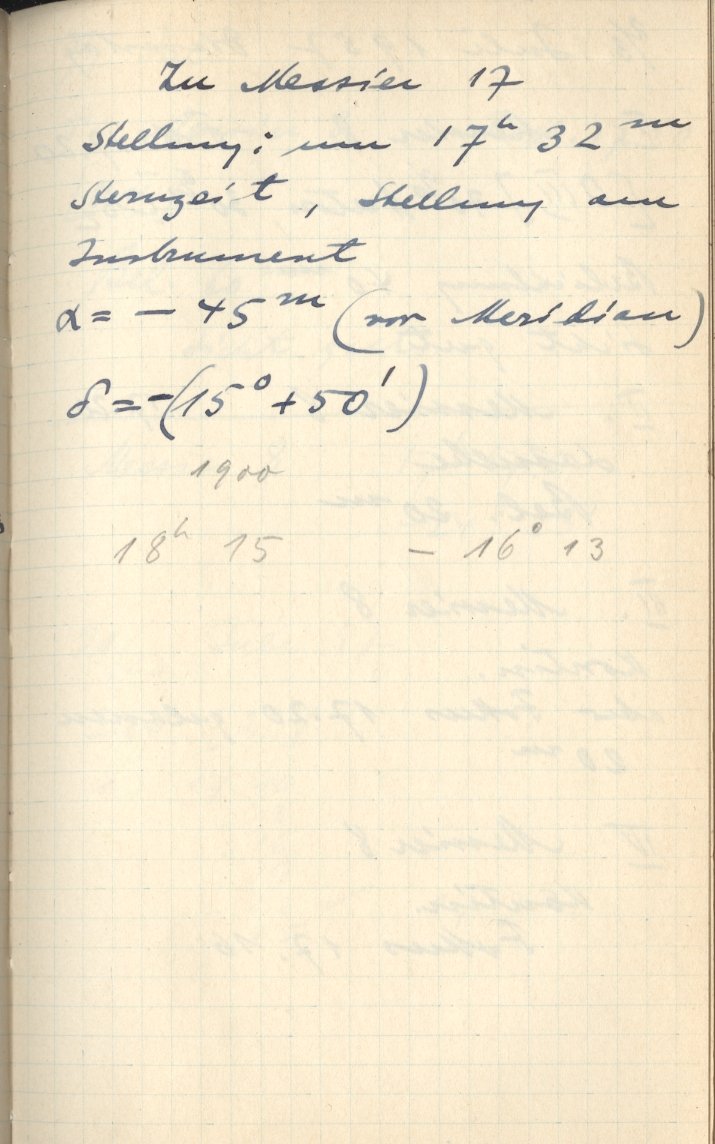 Zu Messier 17
Stellung: um 17ʰ 32ᵐ
Sternzeit, Stellung am
Instrument
α = − 45ᵐ (vor Meridian)
δ = −(15° + 50')
1900
18ʰ 15 − 16° 13